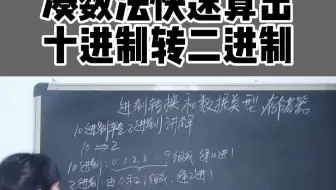 凑数法快速算出
十进制转二进制
进制转换和数据类型,存储器
10进制转2进制 讲解
10 ⇒ 2
10进制: 0 1 2 3 … 9组成,逢10进1
2进制: 由0和1组成,逢2进1